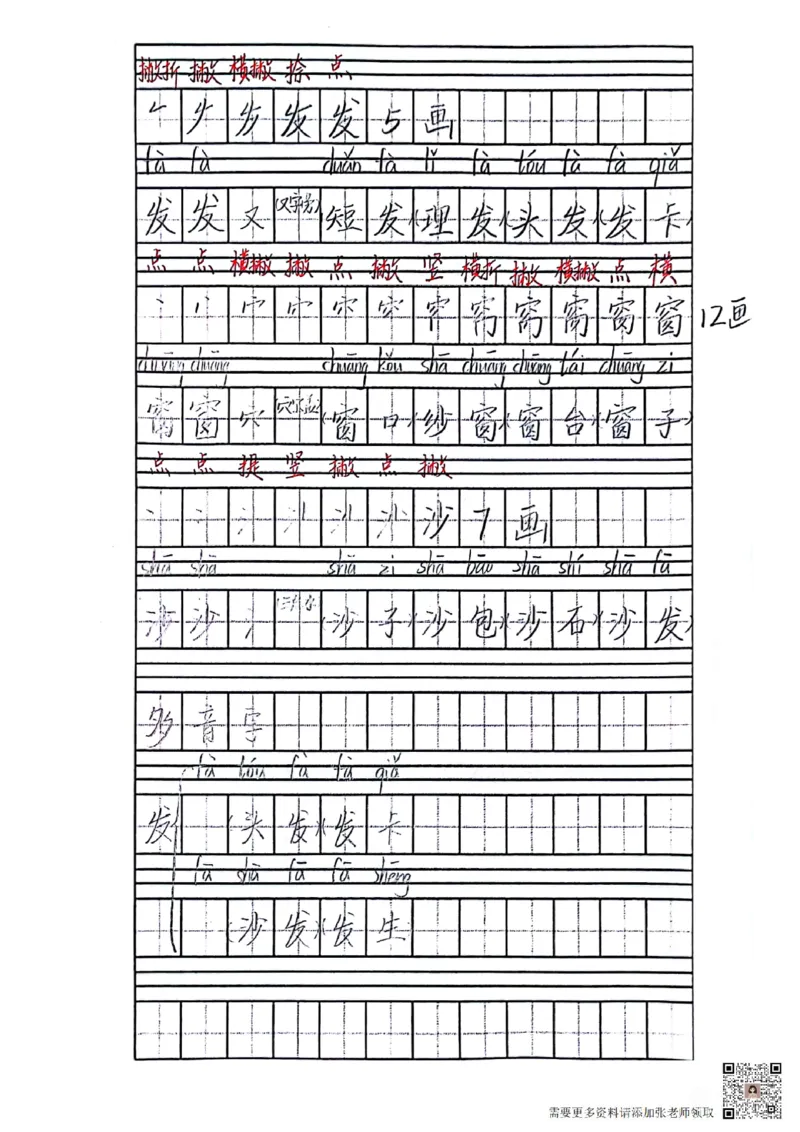 撇折 撇 横撇 捺 点
发 发 5 画
fà fà duǎn fà lǐ fà tóu fà fà qiǎ
发 发 又 (又字旁) 短 发 (理 发)(头 发)(发 卡)
点 点 横撇 撇 点 撇 竖 横折 撇 横撇 点 横
窗 12画
chuāng chuāng chuāng kǒu shā chuāng chuāng tái chuāng zi
窗 窗 穴 (窗 口)(纱 窗)(窗 台)(窗 子)
点 点 提 竖 撇 点 撇
沙 7 画
shā shā shā zi shā bāo shā shí shā fā
沙 沙 氵 (沙 子)(沙 包)(沙 石)(沙 发)
多 音 字
fà tóu fà fà qiǎ
发 (头 发)(发 卡
fā shā fā fā shēng
(沙 发)(发 生
需要更多资料请添加张老师领取